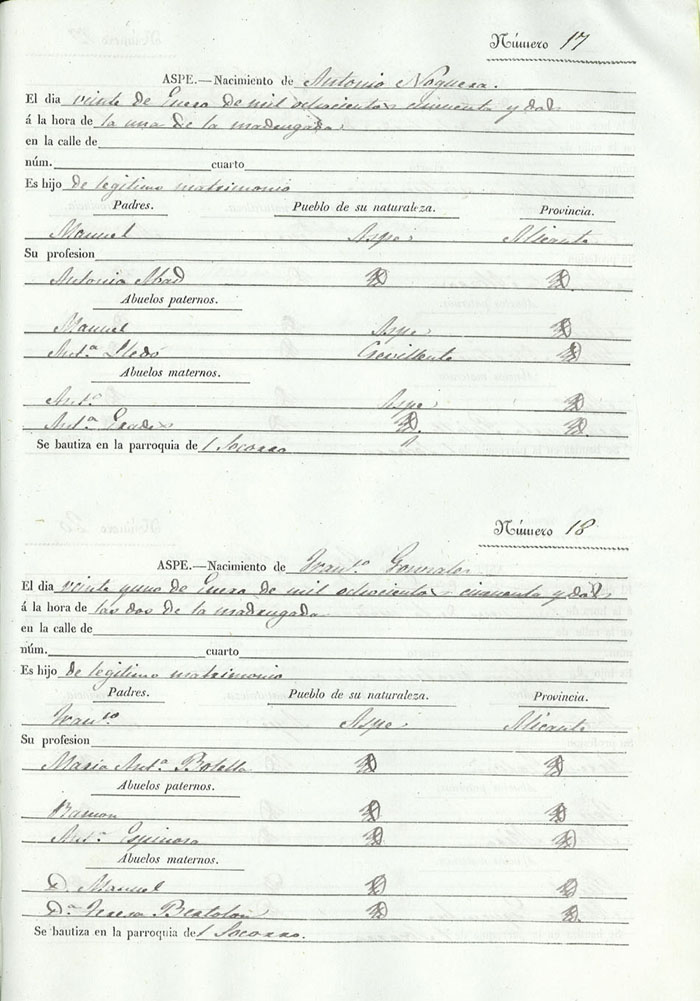 Número 17
ASPE.—Nacimiento de Antonio Noguera.
El dia veinte de Enero de mil ochocientos cincuenta y dos
á la hora de la una de la madrugada
en la calle de
núm. cuarto
Es hijo de legitimo matrimonio
Padres. Pueblo de su naturaleza. Provincia.
Manuel Aspe Alicante
Su profesion
Antonia Abad
Abuelos paternos.
Manuel Aspe
Ant.a Lledó Crevillente
Abuelos maternos.
Ant.o Aspe
Ant.a
Se bautiza en la parroquia de l Socorro
Número 18
ASPE.—Nacimiento de Fran.co Gonzalez
El dia veinte y uno de Enero de mil ochocientos cincuenta y dos
á la hora de las dos de la madrugada
en la calle de
núm. cuarto
Es hijo de legitimo matrimonio
Padres. Pueblo de su naturaleza. Provincia.
Fran.co Aspe Alicante
Su profesion
Maria Ant.a Botella
Abuelos paternos.
Ramon
Ant.a Espinosa
Abuelos maternos.
D. Manuel
D.a Teresa
Se bautiza en la parroquia de l Socorro.